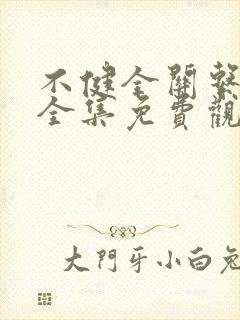 不健全關繫
全集免費觀
大門牙小白兔